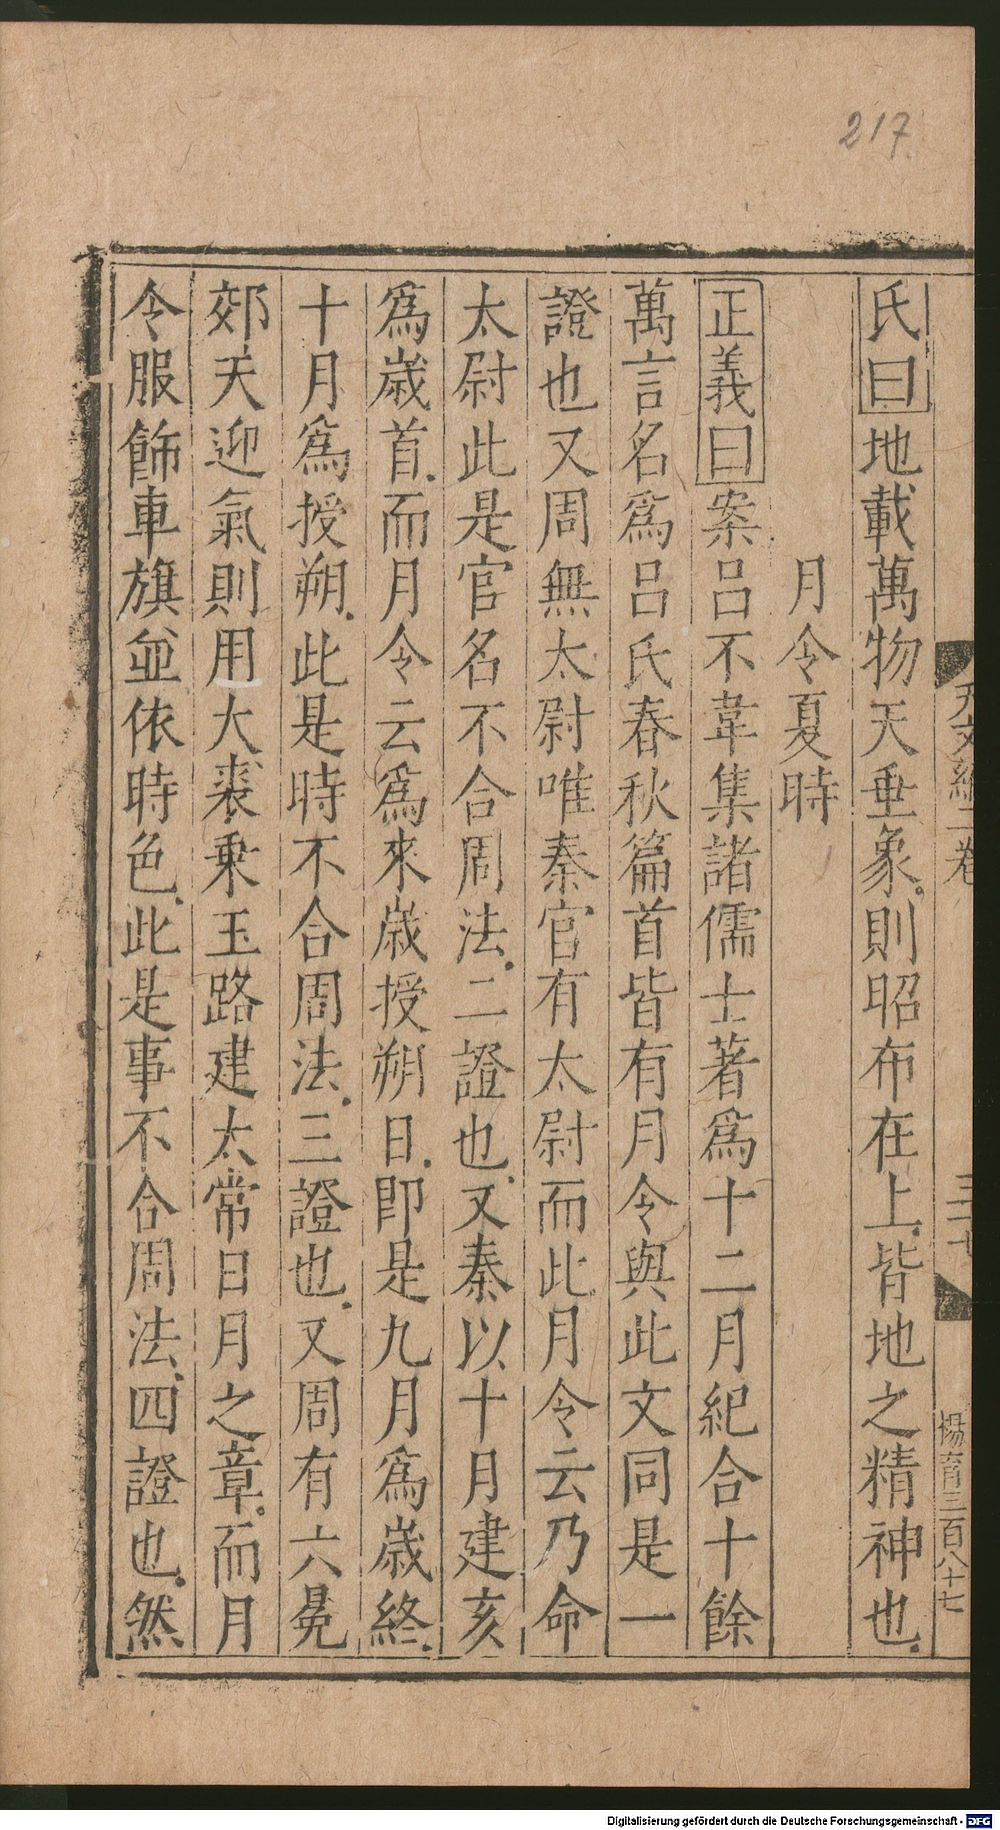 217
天文編二卷
三十七
楊育三百八十七
氏曰地載萬物天垂象則昭布在上皆地之精神也
月令夏時
正義曰案呂不韋集諸儒士著爲十二月紀合十餘
萬言名爲呂氏春秋篇首皆有月令與此文同是一
證也又周無太尉唯秦官有太尉而此月令云乃命
太尉此是官名不合周法二證也又秦以十月建亥
爲歲首而月令云爲來歲授朔日即是九月爲歲終
十月爲授朔此是時不合周法三證也又周有六冕
郊天迎氣則用大裘乗玉路建太常日月之章而月
令服飾車旗並依時色此是事不合周法四證也然
Digitalisierung gefördert durch die Deutsche Forschungsgemeinschaft - DFG